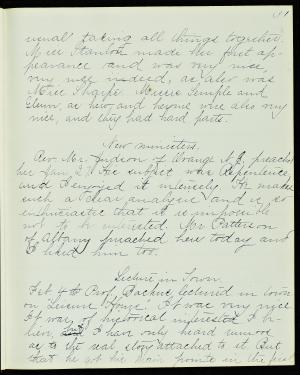 usual taking all things together.
Miss Stanton made her first ap-
pearance and was very nice,
very nice indeed, as also was
Miss Sharpe. Messrs Temple and
Glenn, as hero and heroine were also very
nice, and they had hard parts.
New ministers.
Rev. Mr. Judson of Orange N.J. preached
here Jan. 27. His subject was dependence,
and I enjoyed it intensely. He makes
such a clear analysis and is so
enthusiastic that it is impossible
not to be interested. Mr Patterson
of Albany preached here today and
I heard him too.
Lecture in Town.
Feb 4th Prof. Backus lectured in town
on It was very nice
It was of historical interest I be-
lieve, I have only heard rumors
as to the real story attached to it But
that he got his main points in the